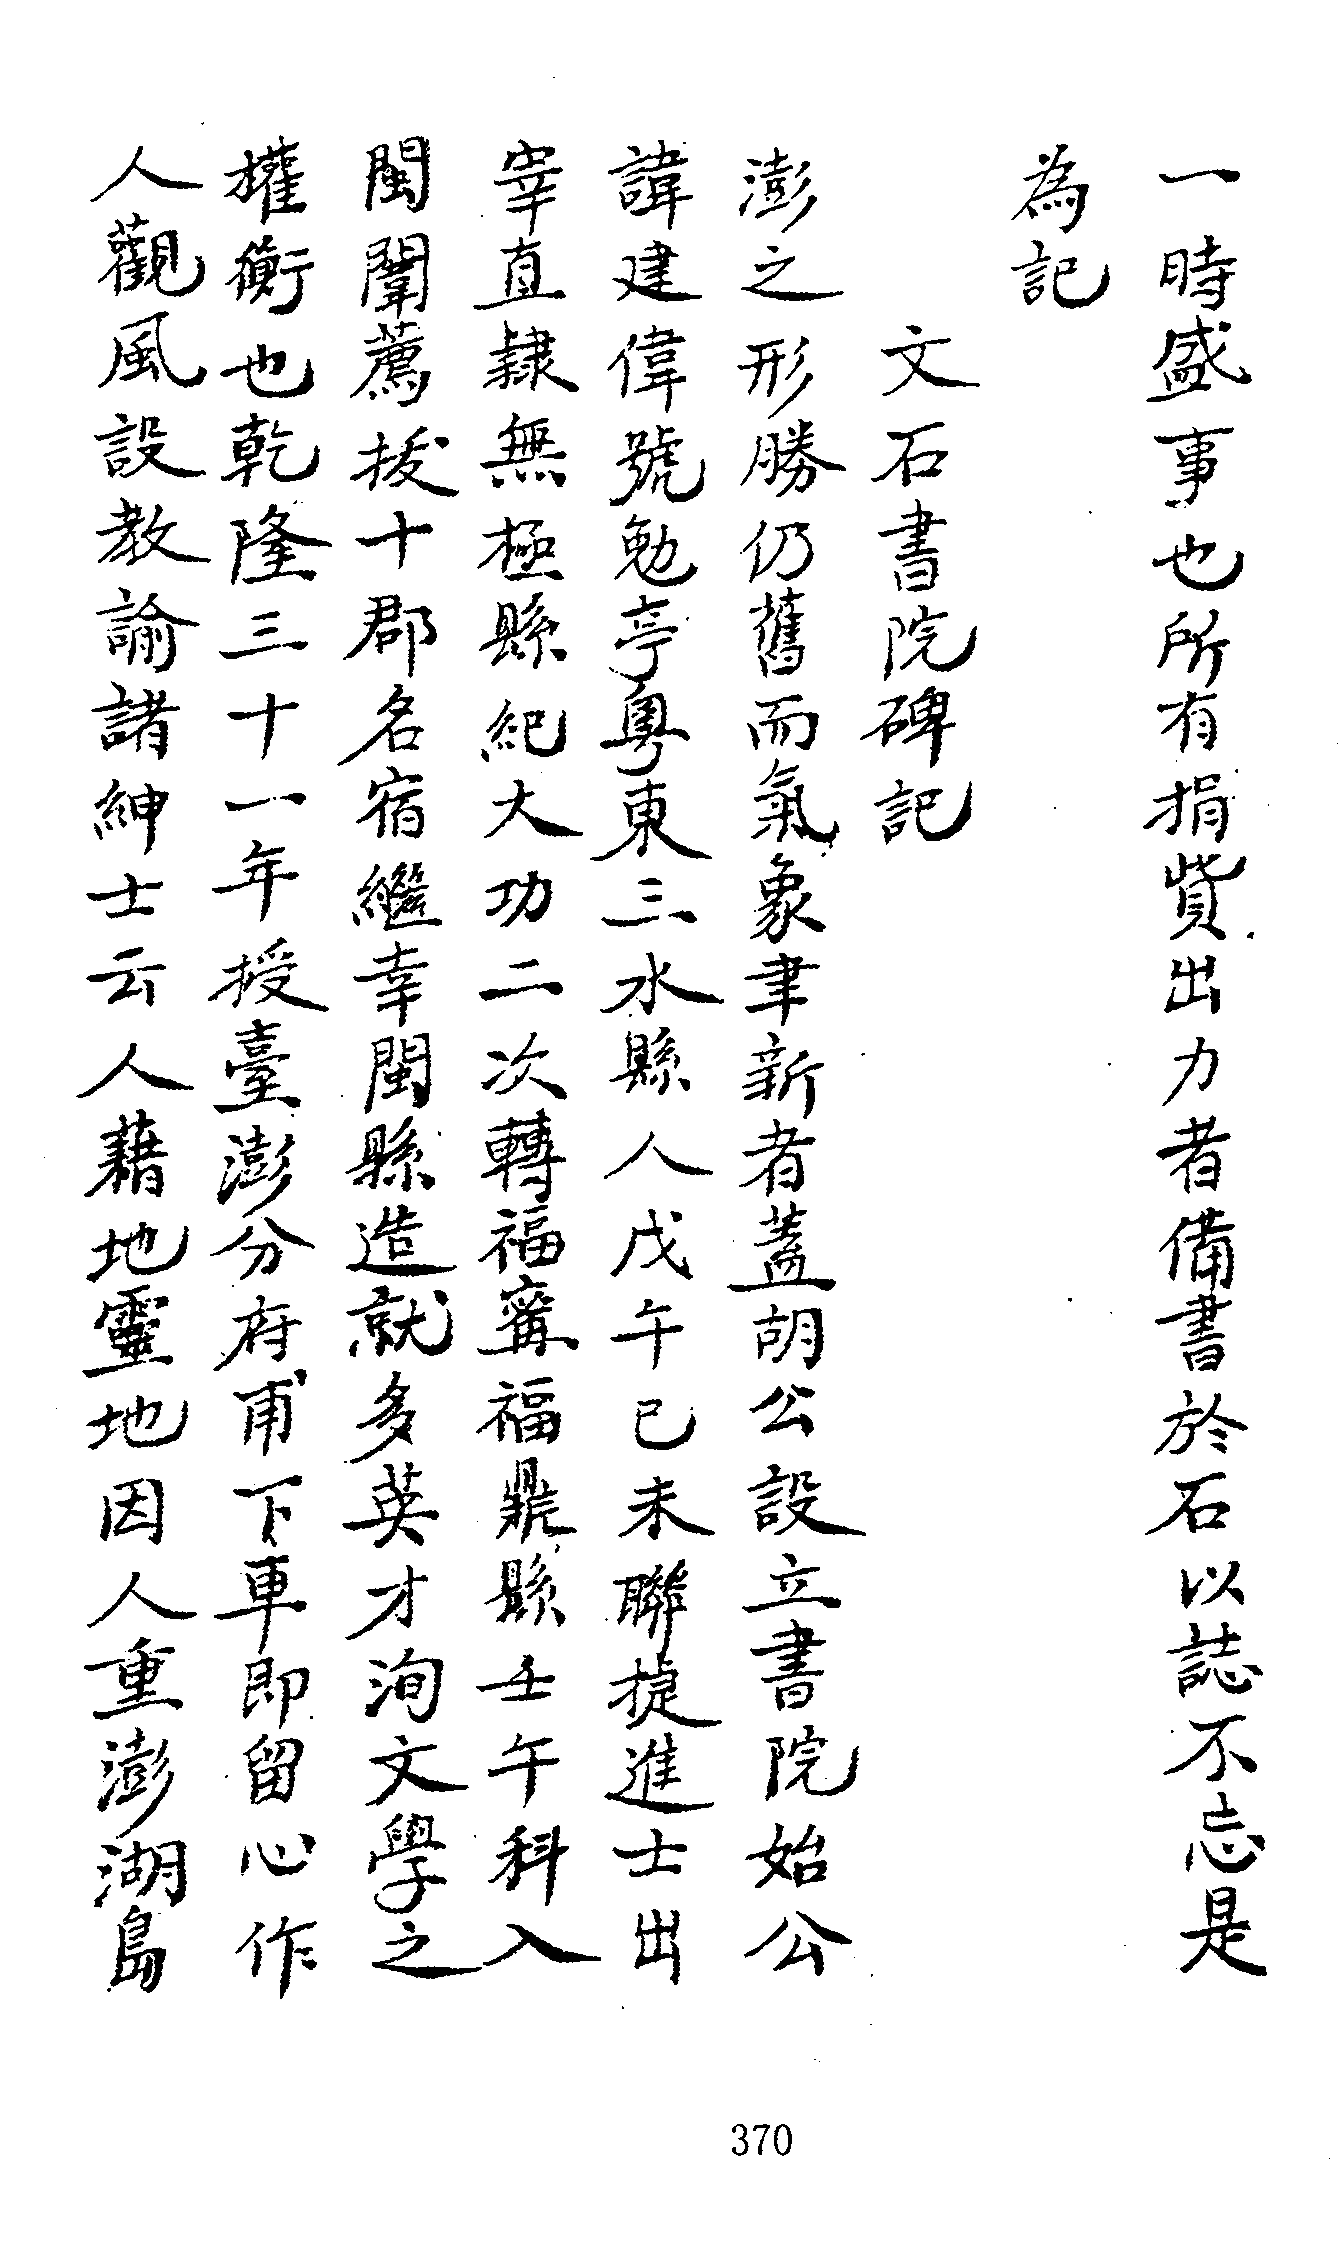 一時盛事也所有捐貲出力者備書於石以誌不忘是
為記
文石書院碑記
澎之形勝仍舊而氣象聿新者蓋胡公設立書院始公
諱建偉號勉亭粵東三水縣人戊午已未聯捷進士出
宰直隸無極縣紀大功二次轉福寧福鼎縣壬午科入
閩闈薦拔十郡名宿繼幸閩縣造就多英才洵文學之
權衡也乾隆三十一年授臺澎分府甫下車即留心作
人觀風設教諭諸紳士云人藉地靈地因人重澎湖島
370